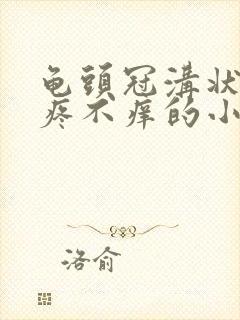 龟頭冠溝状
疼不痒的小
洛俞